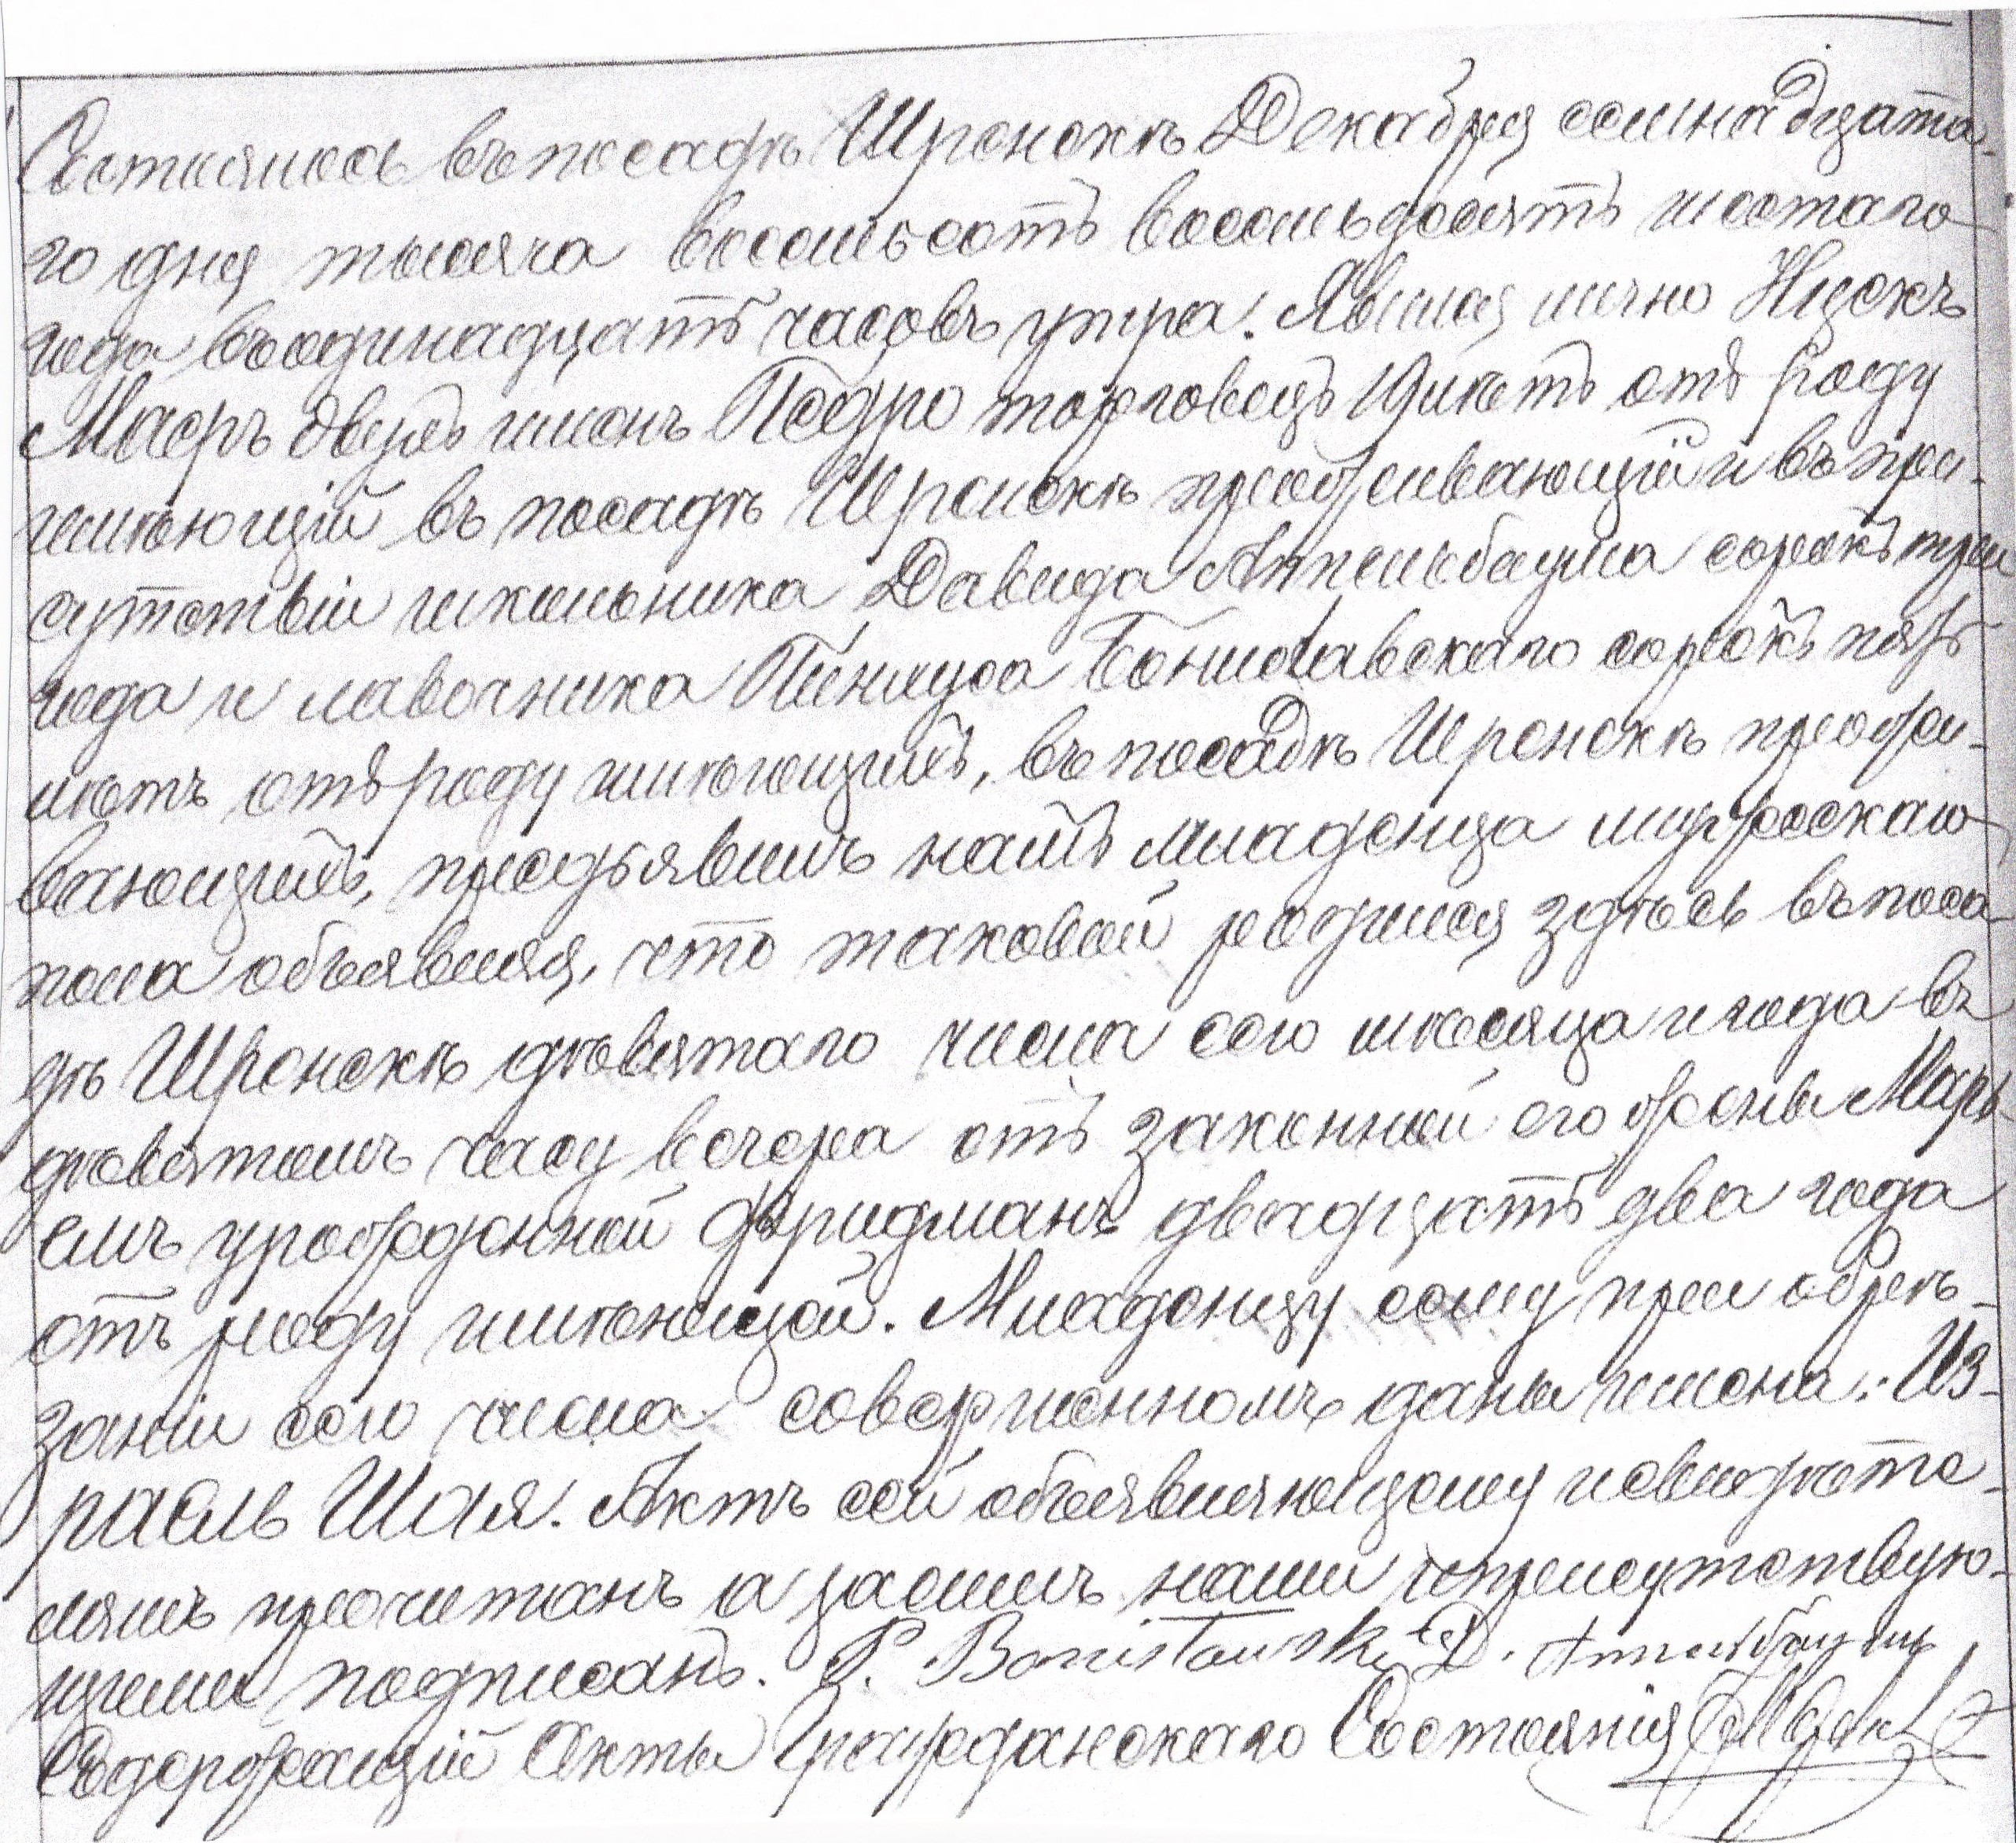 Состоялось въ посадѣ Шренскѣ Декабря семнадцата-
го дня тысяча восемьсотъ восемьдесятъ шестаго
года въ одинадцать часовъ утра. Явился лично Ицекъ
Маеръ двухъ именъ Подро торговецъ лѣтъ отъ роду
имѣющій въ посадѣ Шренскѣ проживающій и въ при-
сутствіи школьника Давида Аппельбаума сорокъ три
года и лавочника Пинкуса Бониславскаго сорокъ пять
лѣтъ отъ роду имѣющихъ, въ посадѣ Шренскѣ прожи-
вающихъ, предъявилъ намъ младенца мужескаго
пола объявляя, что таковой родился здѣсь въ поса
дѣ Шренскѣ девятаго числа сего мѣсяца и года въ
девятомъ часу вечера отъ законной его жены Маръ
емъ урожденной Фридманъ двадцать два года
отъ роду имѣющей. Младенцу сему при обрѣ-
заніи сего числа совершенномъ даны имена: Из-
раель Шая. Актъ сей объявляющему и свидѣте-
лямъ прочитанъ а засимъ нами и присутствую-
щими подписанъ. P. Bonisławski Д. Аппельбаумъ
Содержащій Акты Гражданскаго Состоянія